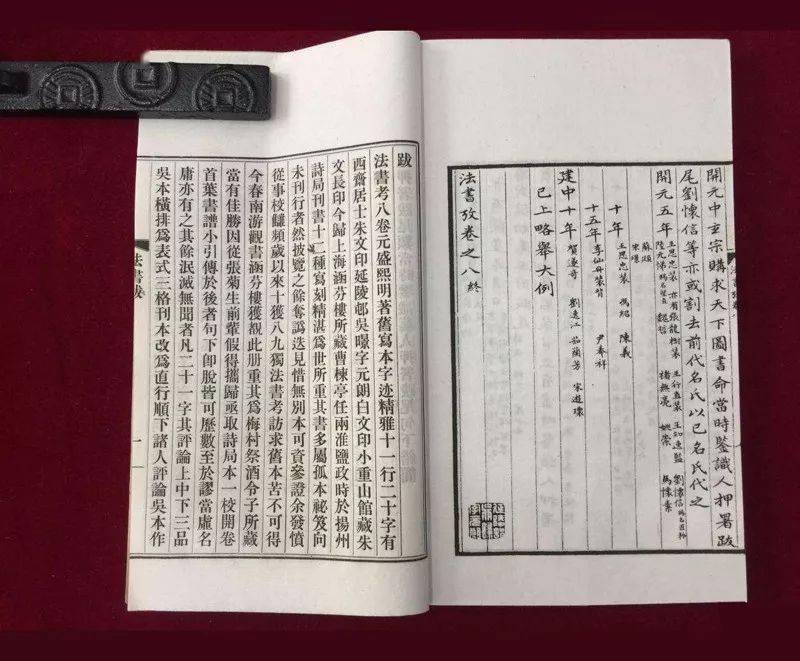 開元中玄宗購求天下圖書命當時鑒識人押署跋
尾劉懷信等亦或割去前代名氏以已名氏代之
開元五年
十年
王思忠裝
馮紹
陳義
十五年
李仙舟裝背
尹奉祥
建中十年
賀遂奇
劉逸江
茹蘭芳
宋遊瓌
已上略舉大例
法書攷卷之八終
跋
法書考八卷元盛熙明著舊寫本字迹精雅十一行二十字有
西齋居士朱文印延陵邨吳曔字元朗白文印小重山館藏朱
文長印今歸上海涵芬樓所藏曹楝亭任兩淮鹽政時於揚州
詩局刊書十二種寫刻精湛爲世所重其書多屬孤本祕笈向
未刊行者然披覽之餘奪譌迭見惜無別本可資參證余發憤
從事校讎頻歲以來十獲八九獨法書考訪求舊本苦不可得
今春南游觀書涵芬樓獲覩此册重其爲梅村祭酒令子所藏
當有佳勝因從張菊生前輩假得攜歸亟取詩局本一校開卷
首葉書譜小引傳於後者句下卽脫皆可歷數至於謬當虛名
庸亦有之其餘泯滅無聞者凡二十一字其評論上中下三品
吳本橫排爲表式三格刊本改爲直行順下諸人評論吳本作
法書跋
一